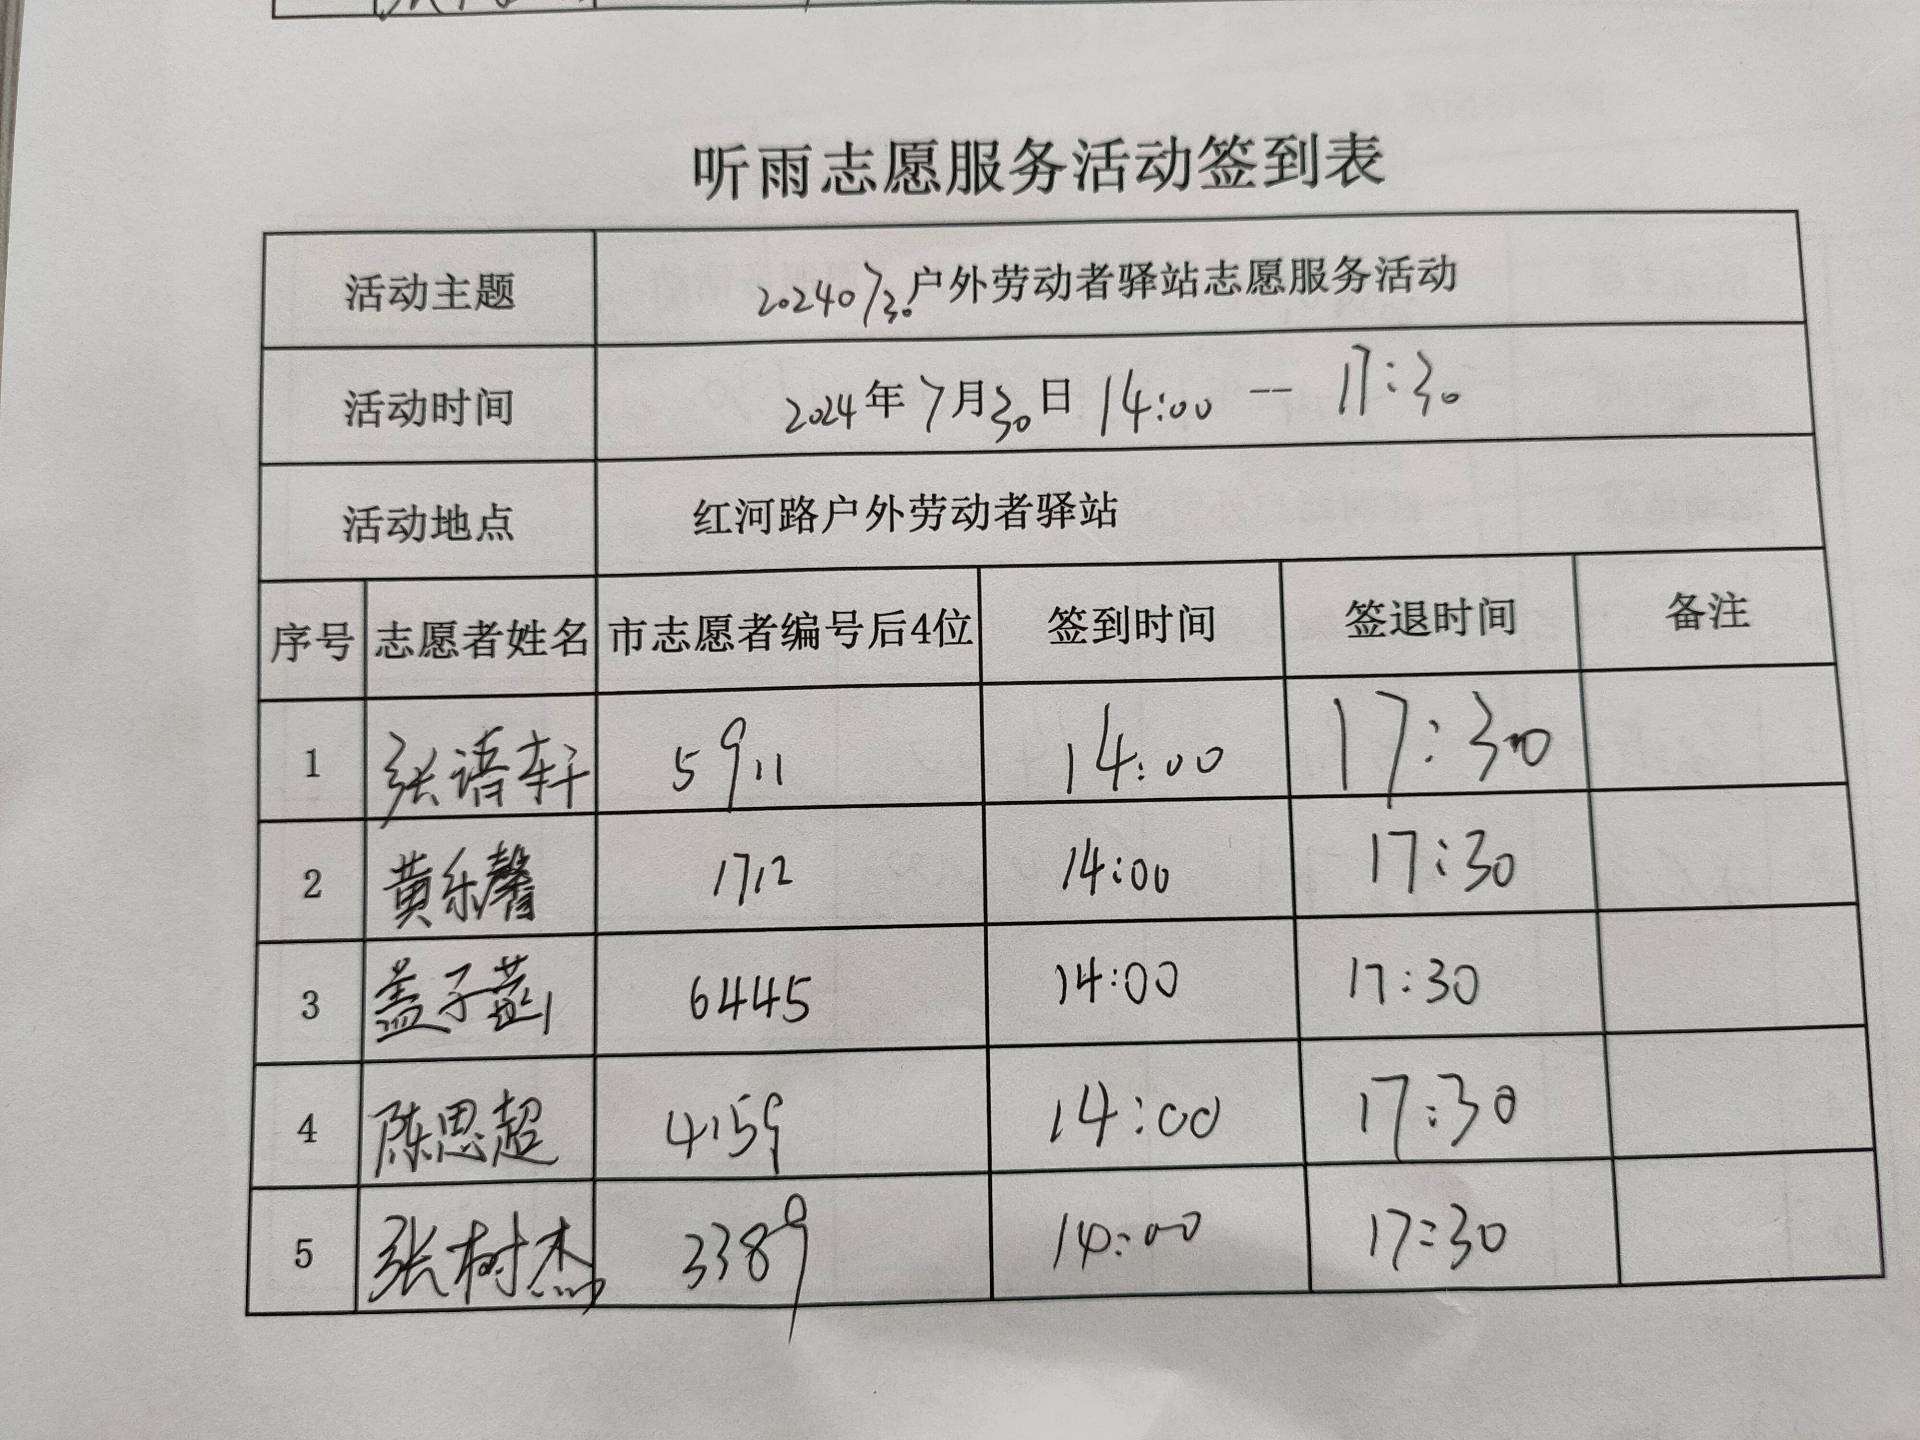 听雨志愿服务活动签到表
活动主题 20240730户外劳动者驿站志愿服务活动
活动时间 2024年7月30日 14:00 -- 17:30
活动地点 红河路户外劳动者驿站
序号 志愿者姓名 市志愿者编号后4位 签到时间 签退时间 备注
1 张语轩 5911 14:00 17:30
2 黄乐馨 1712 14:00 17:30
3 盖子 6445 14:00 17:30
4 陈思超 4159 14:00 17:30
5 张树杰 3389 14:00 17:30